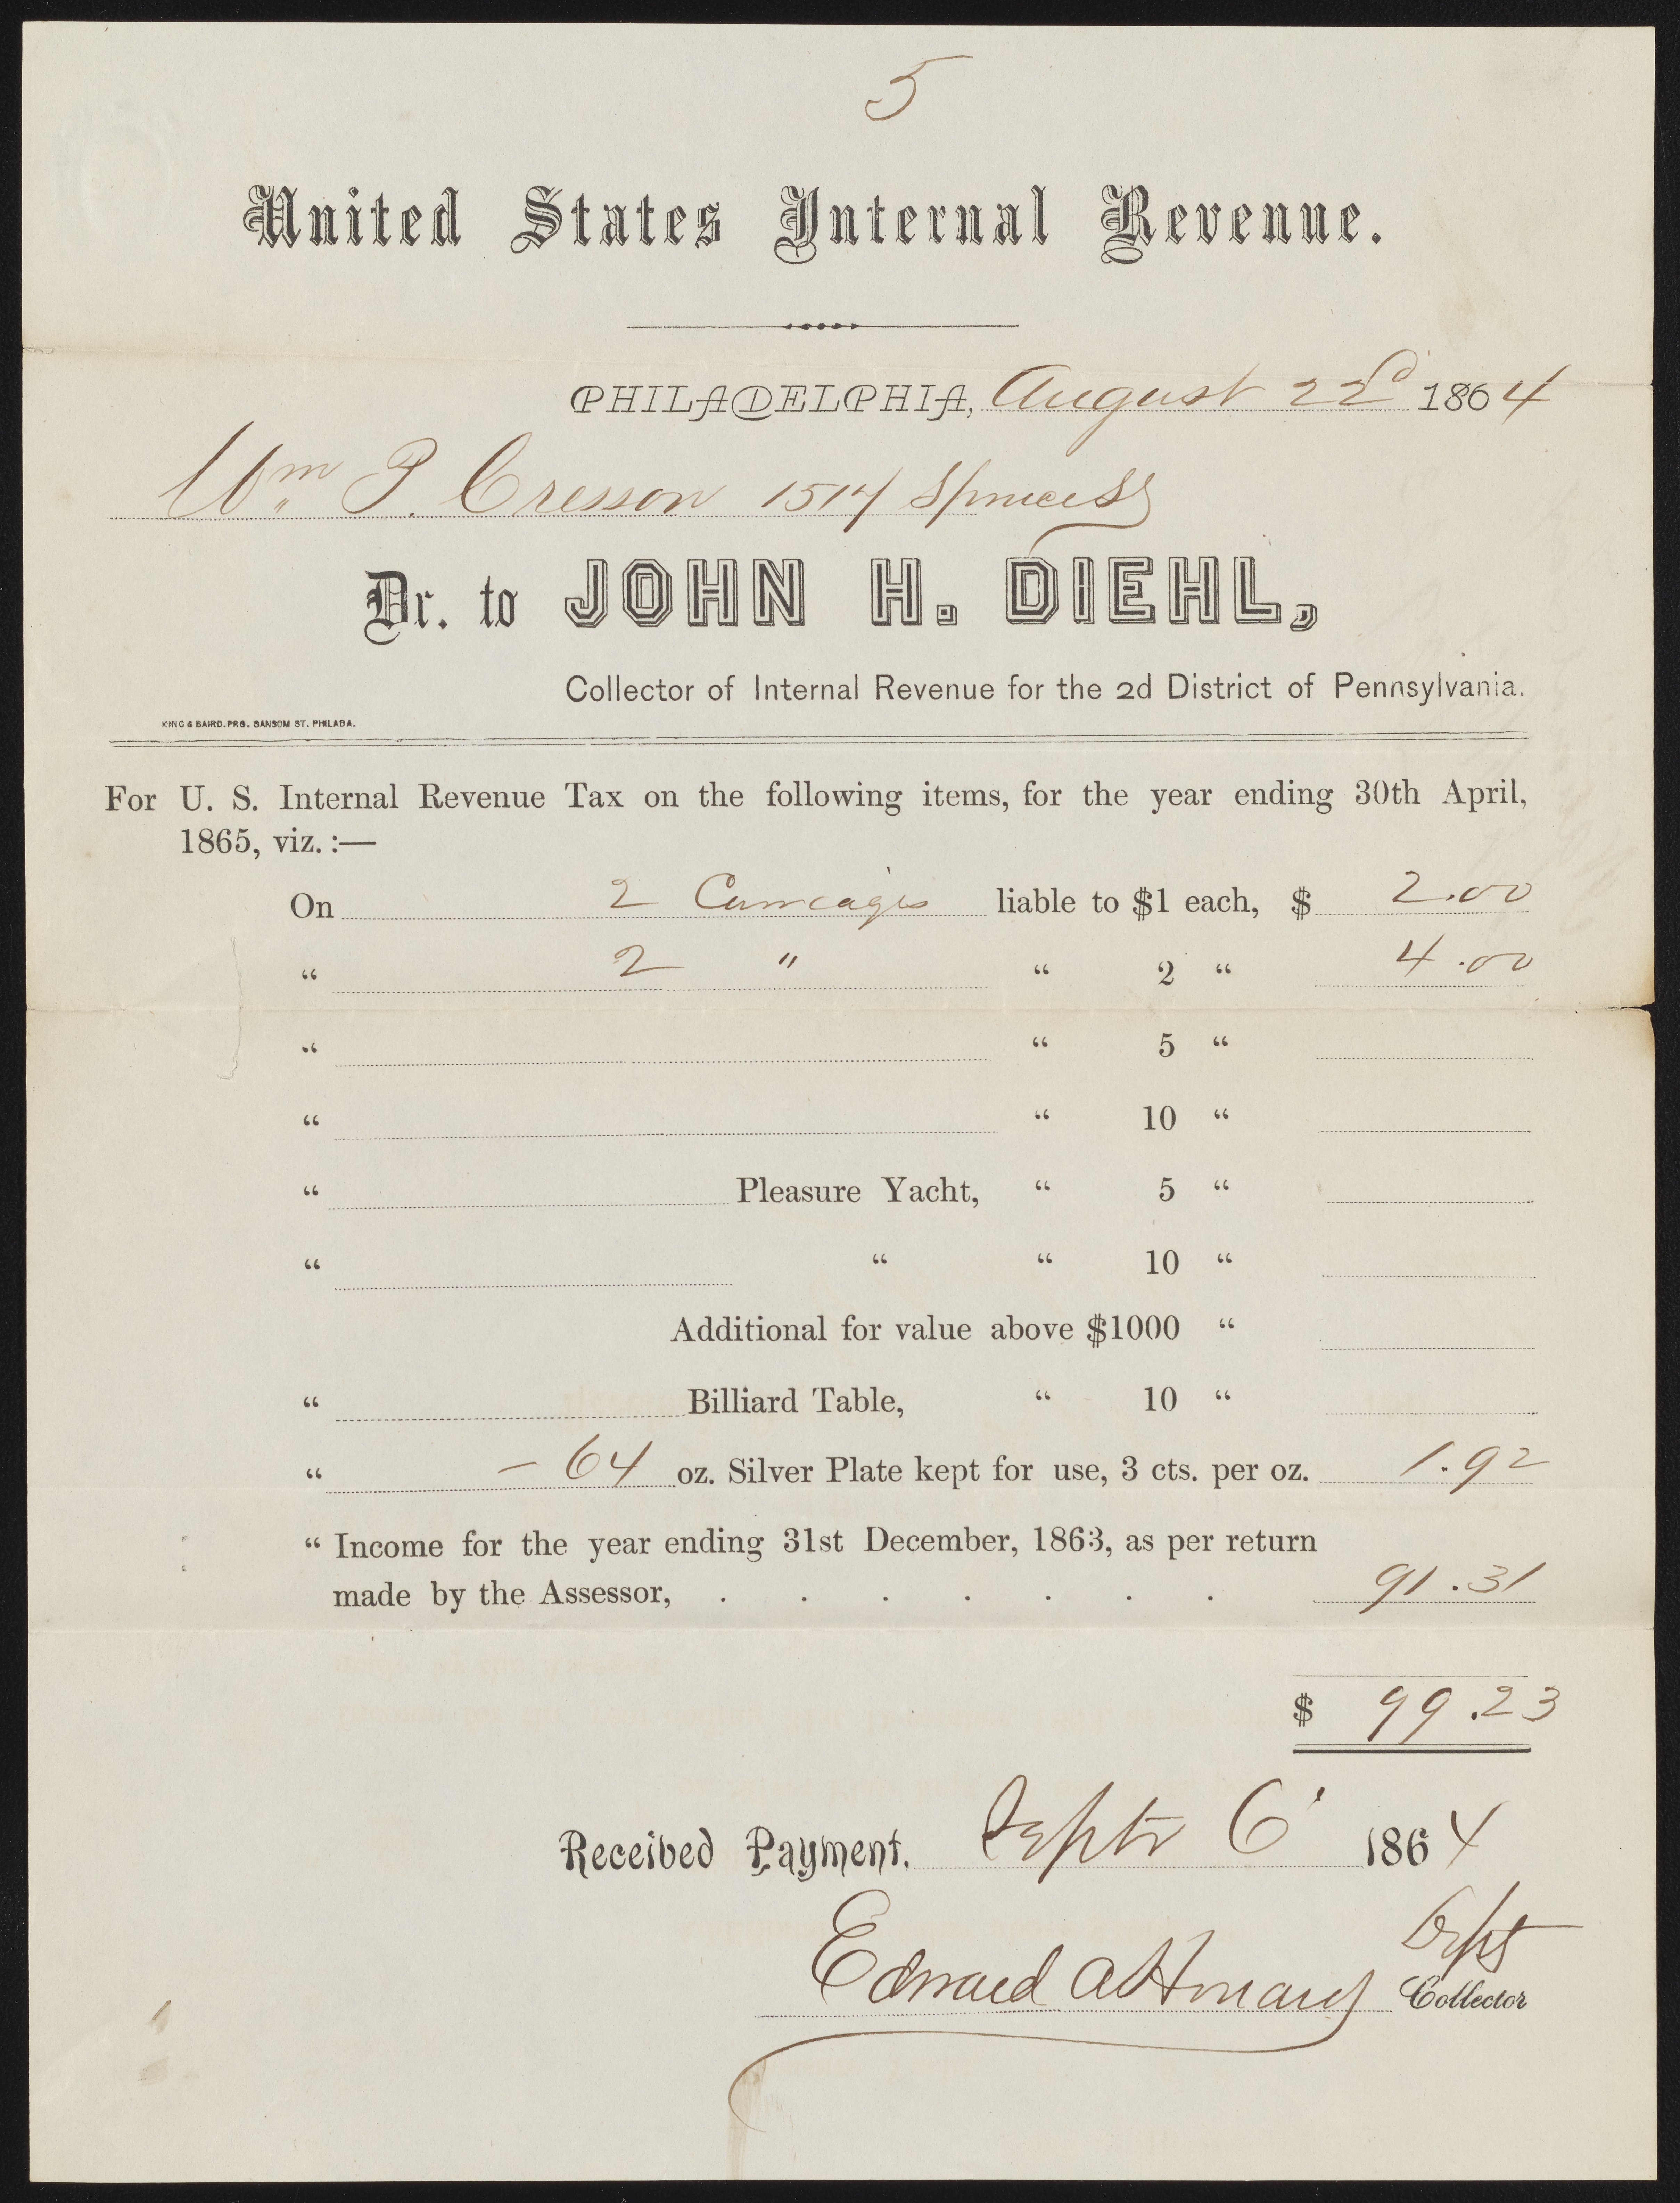 5
United States Internal Revenue.
PHILADELPHIA, August 22d 1864
Wm P. Cresson 1514 Spruce St
Dr. to JOHN H. DIEHL,
Collector of Internal Revenue for the 2d District of Pennsylvania.
KING & BAIRD, PRS. SANSOM ST. PHILADA.
For U. S. Internal Revenue Tax on the following items, for the year ending 30th April,
1865, viz.:—
On 2 Carriages liable to $1 each, $ 2.00
“ 2 " “ 2 “ 4.00
“ “ 5 “
“ “ 10 “
“ Pleasure Yacht, “ 5 “
“ “ “ 10 “
Additional for value above $1000 “
“ Billiard Table, “ 10 “
“ – 64 oz. Silver Plate kept for use, 3 cts. per oz. 1.92
“ Income for the year ending 31st December, 1863, as per return
made by the Assessor, . . . . . . . 91.31
$ 99.23
Received Payment, Septr 6 1864
Edward A Howard Dpt
Collector